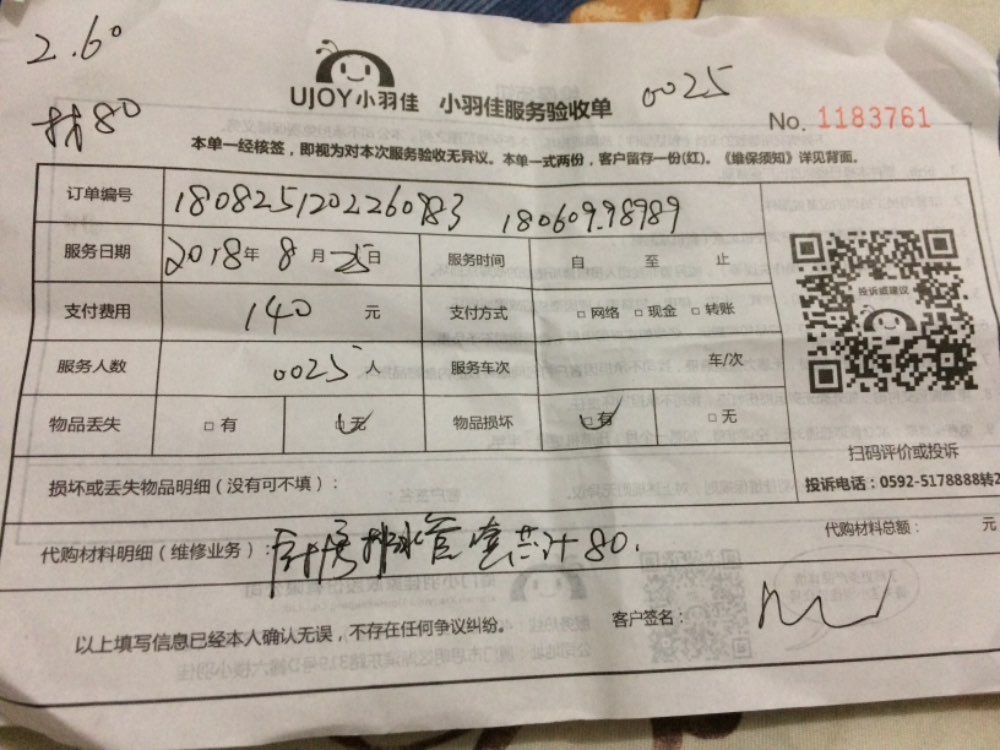 2.6°
80
UJOY小羽佳 小羽佳服务验收单 0025
No. 1183761
本单一经核签，即视为对本次服务验收无异议。本单一式两份，客户留存一份(红)。《维保须知》详见背面。
订单编号 1808251202260983 18060998989
服务日期 2018年 8月 25日 服务时间 自 至 止
投诉或建议
支付费用 140 元 支付方式 □网络 □现金 □转账
服务人数 0025 人 服务车次 车/次
物品丢失 □有 □无 物品损坏 □有 □无
扫码评价或投诉
损坏或丢失物品明细（没有可不填）：
投诉电话：0592-5178888转2
代购材料明细（维修业务）：厨房排水管套共计80.
代购材料总额： 元
以上填写信息已经本人确认无误，不存在任何争议纠纷。
客户签名：